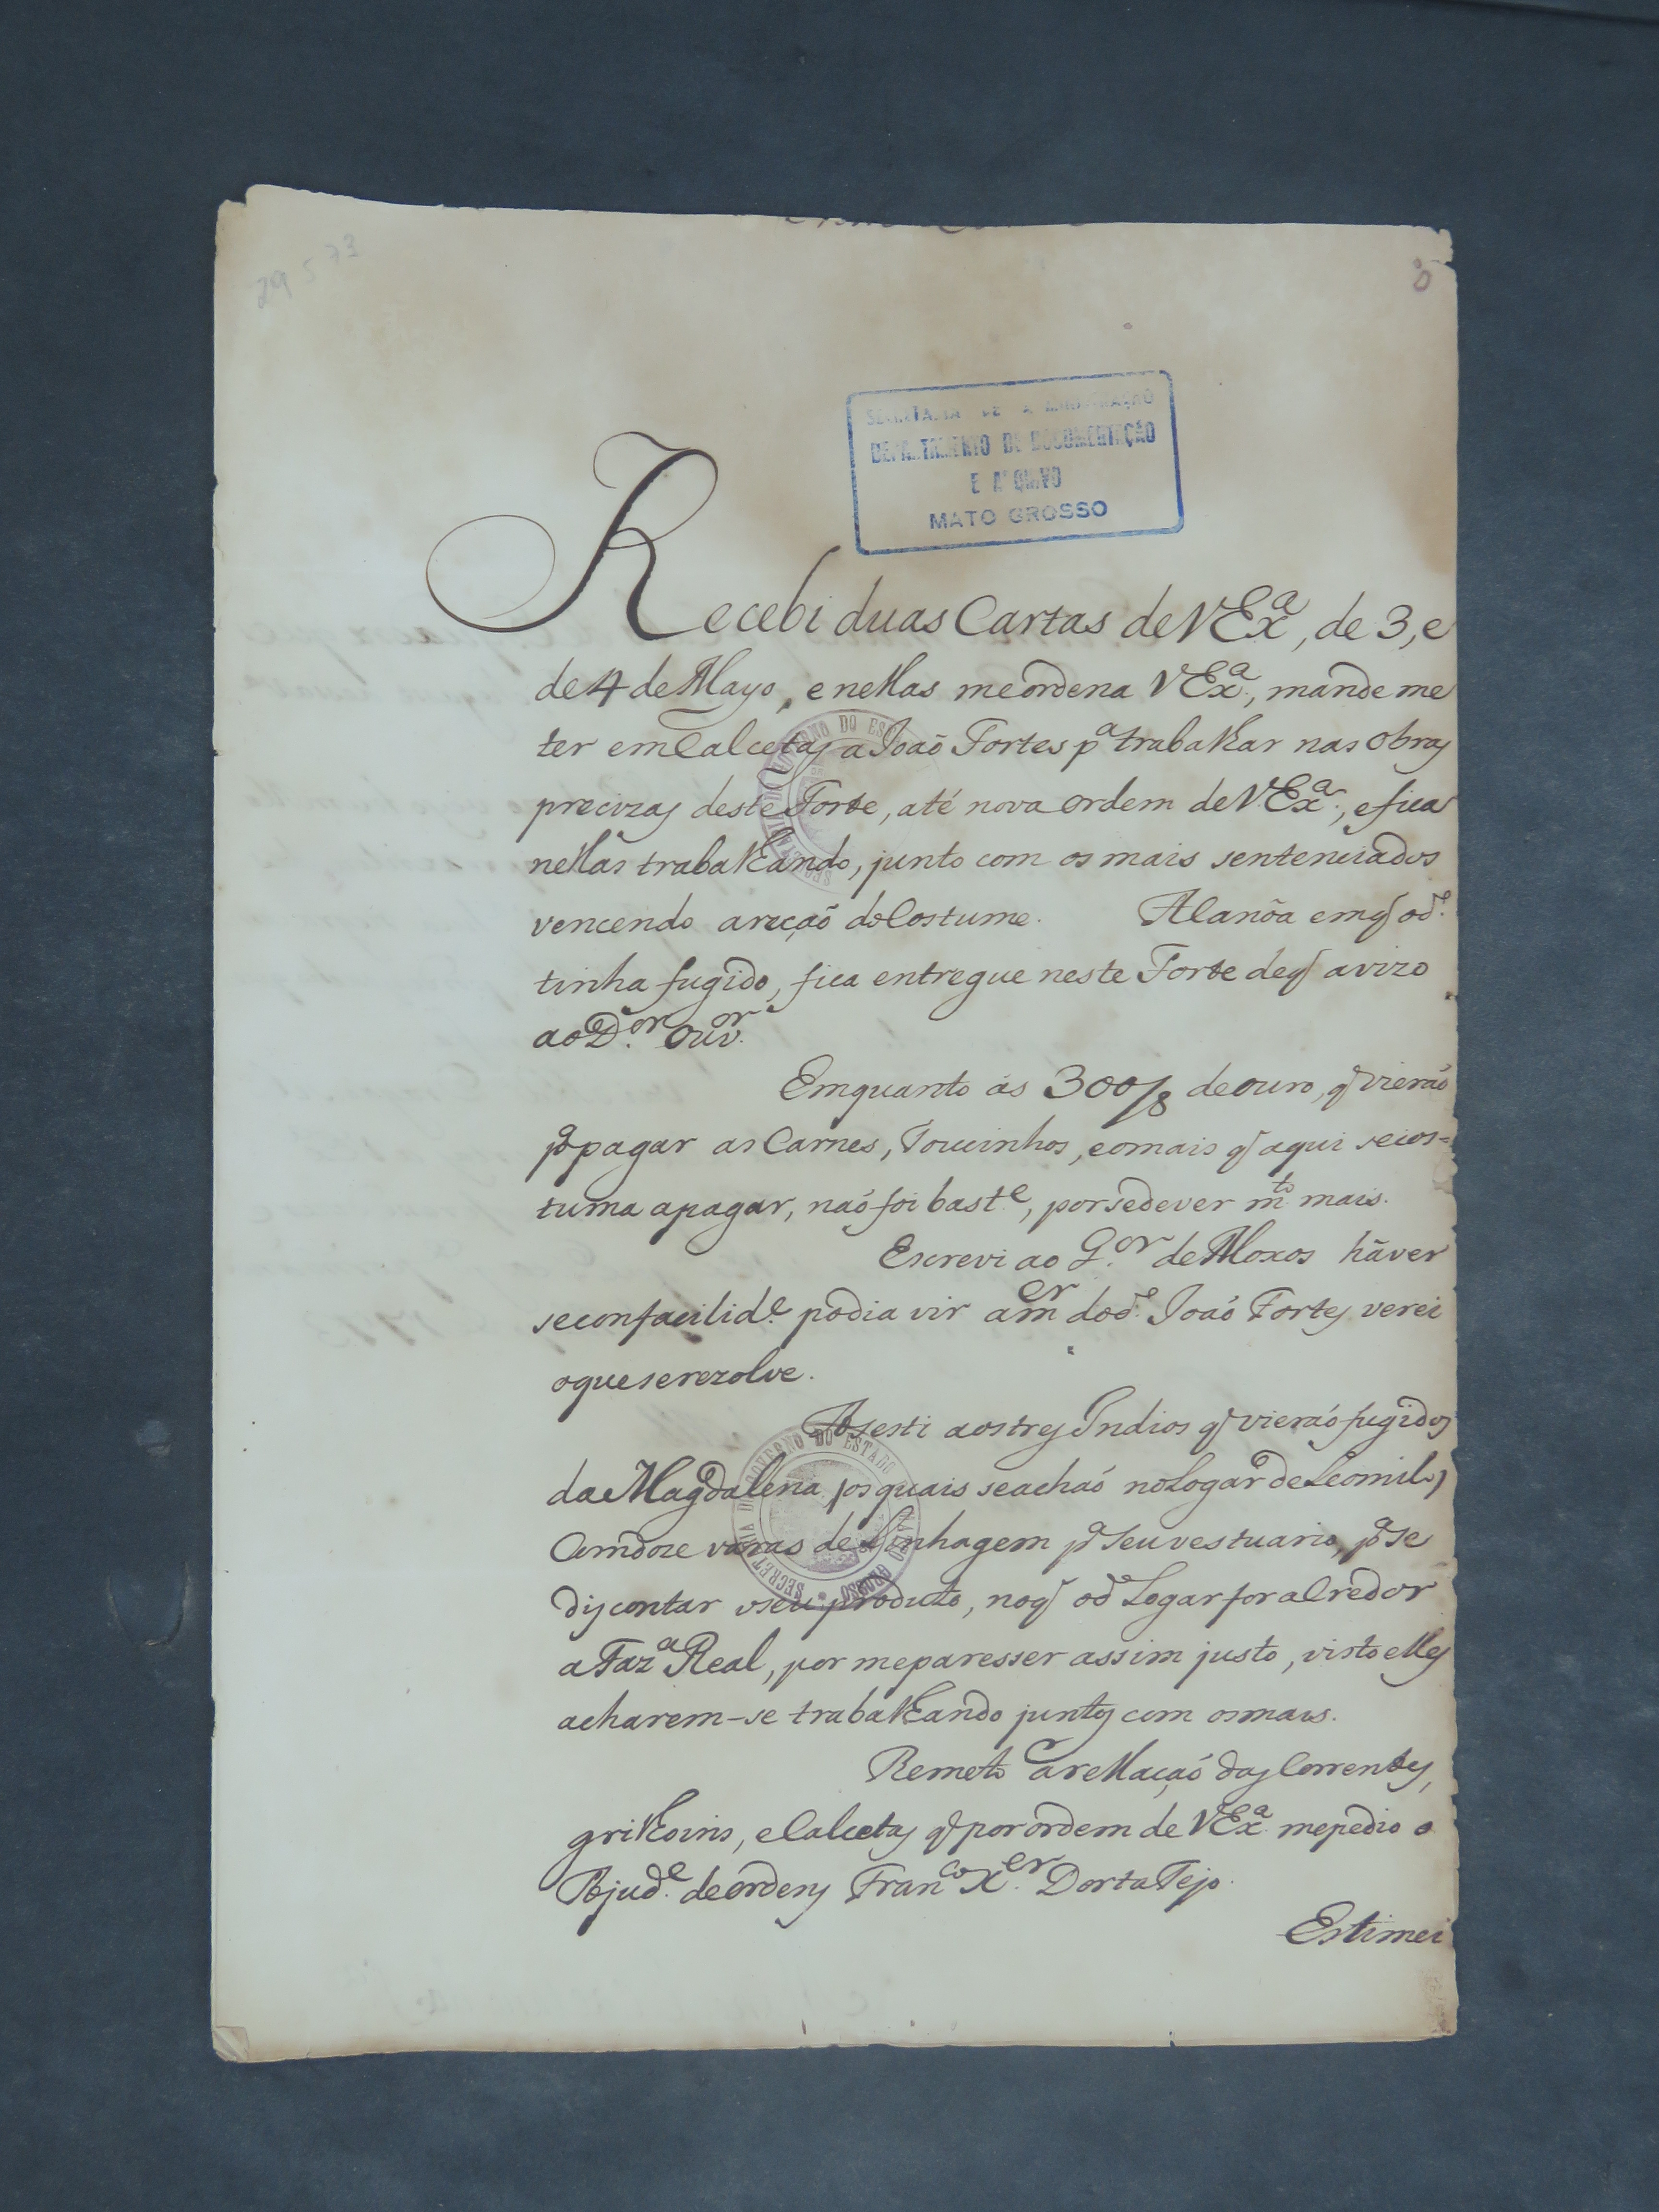 29 5 73
SECRETARIA DE ADMINISTRAÇÃO
DEPARTAMENTO DE DOCUMENTAÇÃO
E ARQUIVO
MATO GROSSO
Recebi duas Cartas de VEx.ª, de 3, e
de 4 de Mayo, e nellas me ordena VEx.ª, mande me
ter em Calcetas a João Fortes p.ª trabalhar nas obras
precizas deste Forte, até nova ordem de VEx.ª, e fica
nellas trabalhando, junto com os mais sentenciados
vencendo a reção do Costume. A Canôa em q̃ o d.º
tinha fugido, fica entregue neste Forte de q̃ avizo
ao D.or Ouv.or
Emquanto ás 300/8 de ouro, q̃ vierão
p.ª pagar as Carnes, Toucinhos, e o mais q̃ aqui se cos-
tuma a pagar, não foi bast.e, por se dever m.to mais.
Escrevi ao G.or de Moxos há ver
se con facilid.e podia vir a m.er do d.º João Fortes verei
o que se rezolve.
Asesti aos tres Indios q̃ vierão fugidos
da Magdalena, os quais se achaó no Logar de Leomil,
Com doze varas de Linhagem p.ª seu vestuario, p.ª se
discontar o seu produto, no q̃ o d.º Logar for alredor
a Faz.ª Real, por me paresser assim justo, visto elles
acharem-se trabalhando juntos com os mais.
Remeto a rellação das Correntes,
grilhoins, e Calcetas q̃ por ordem de VEx.ª me pedio o
Ajud.e de ordens Fran.co X.er Dorta Tejo.
Estimei